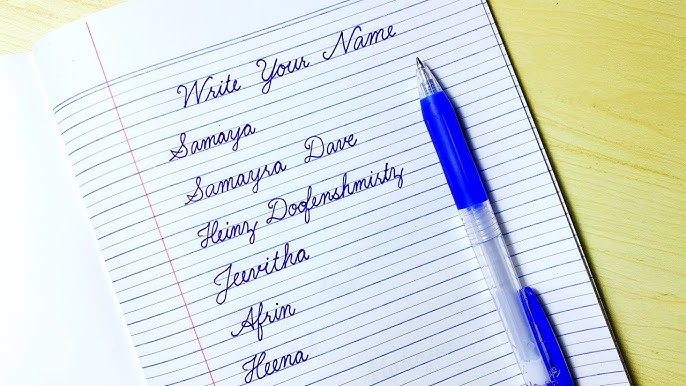 Write Your Name
Samaya
Samaysa Dave
Heinz Doofenshmistz
Jeevitha
Afrin
Heena